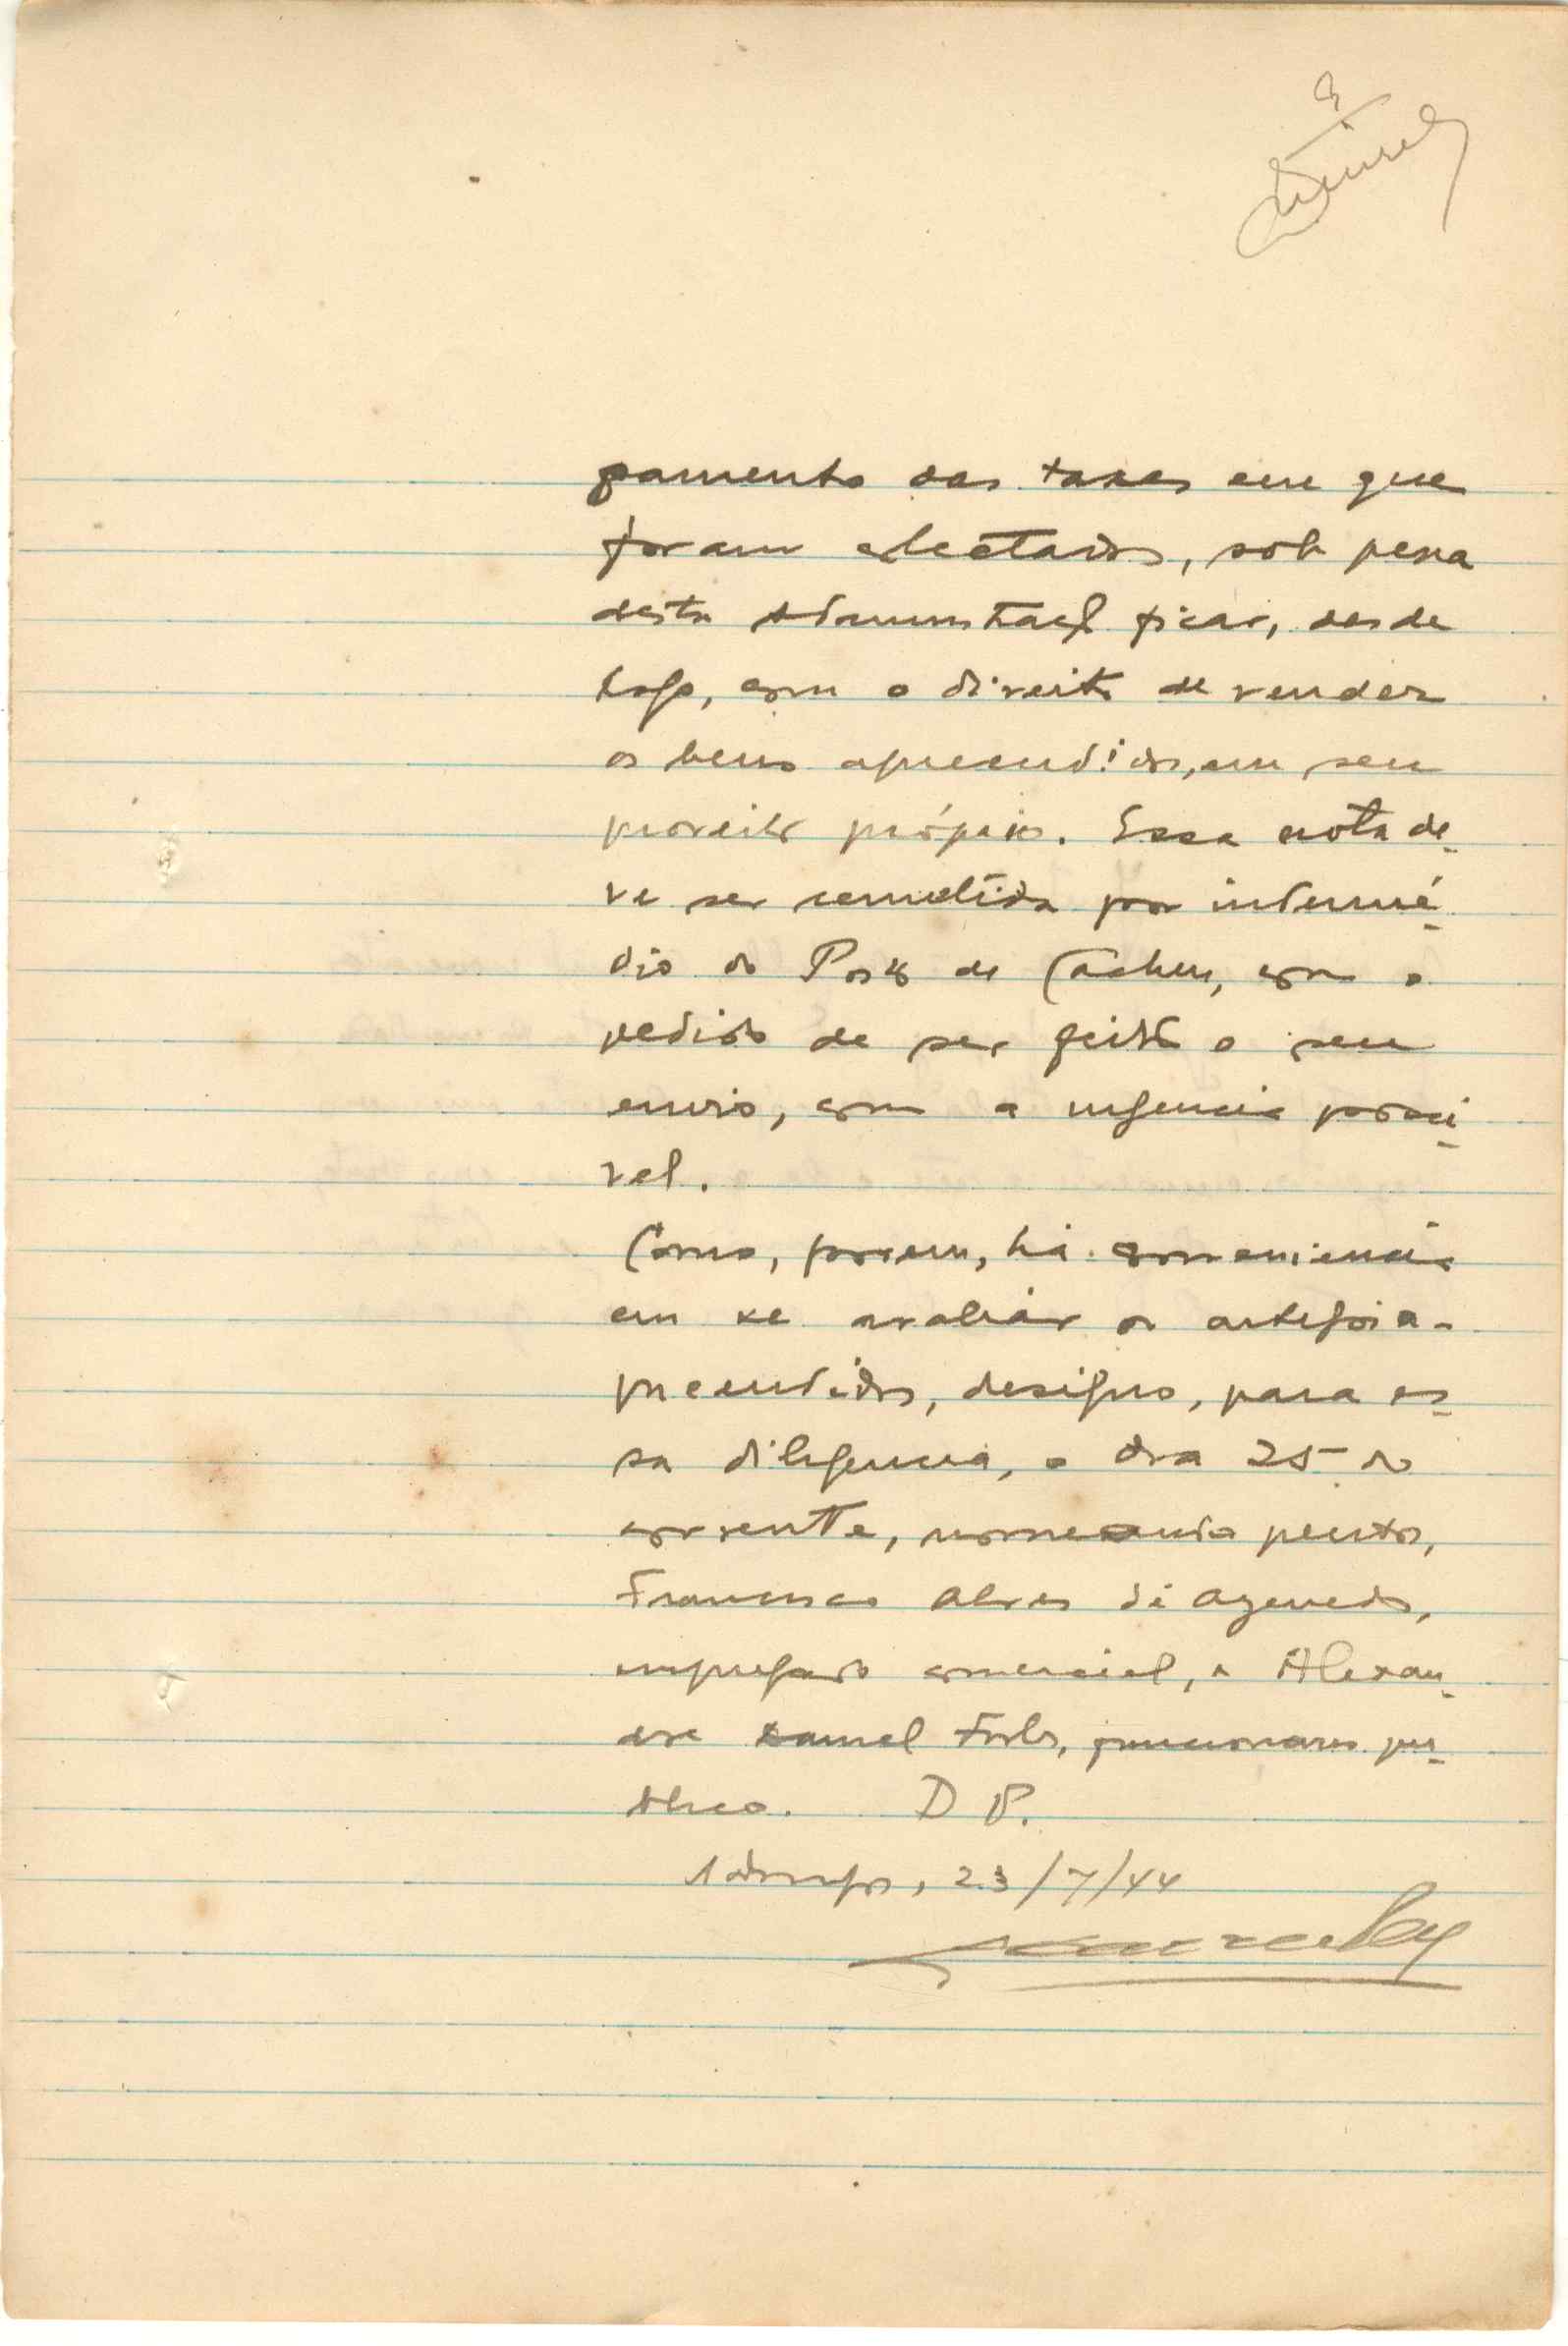 gamento das taxas em que
foram colectados, sob pena
desta Administração ficar, desde
logo, com o direito de vender
os bens apreendidos, em seu
proveito próprio. Essa nota de-
ve ser remetida por intermé-
dio do Posto de Cacheu, com o
pedido de ser feito o seu
envio, com a urgencia possi-
vel.
Como, porem, há conveniencia
em se avaliar os artefos a-
preendidos, designo, para es-
sa diligencia, o dia 25 do
corrente, nomeando peritos,
Francisco Alves de Azevedo,
empregado comercial, e Alexan-
dre Daniel Forbs, funcionario pu-
blico. D P.
23/7/44